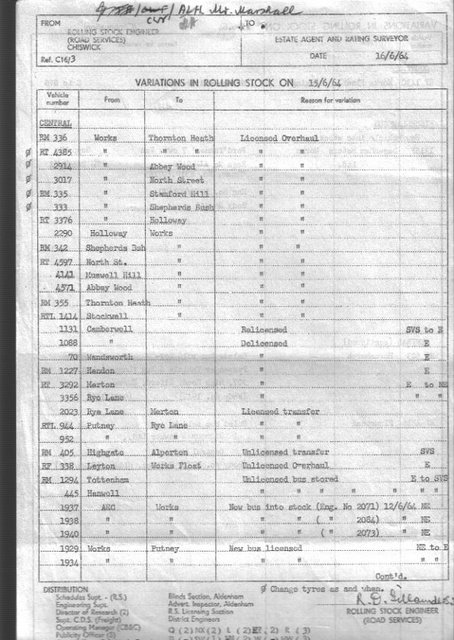 Mr. Marshall
FROM
ROLLING STOCK ENGINEER
(ROAD SERVICES)
CHISWICK
Ref. C16/3
TO
ESTATE AGENT AND RATING SURVEYOR
DATE 16/6/64
VARIATIONS IN ROLLING STOCK ON 15/6/64
Vehicle number From To Reason for variation
CENTRAL
RM 336 Works Thornton Heath Licensed Overhaul
Ø RT 4385 " " " " "
Ø 2914 " Abbey Wood " "
Ø 3017 " North Street " "
Ø RM 335 " Stamford Hill " "
Ø 333 " Shepherds Bush " "
RT 3376 " Holloway " "
2290 Holloway Works " "
RM 342 Shepherds Bsh " " "
RT 4597 North St. " " "
4141 Muswell Hill " " "
4571 Abbey Wood " " "
RM 355 Thornton Heath " " "
RTL 1414 Stockwell " " "
1131 Camberwell Relicensed SVS to E
1088 " Delicensed E
70 Wandsworth " E
RM 1227 Hendon " E
RT 3292 Merton " E to NE
3356 Rye Lane " " "
2023 Rye Lane Merton Licensed transfer
RTL 944 Putney Rye Lane " "
952 " " " "
RM 405 Highgate Alperton Unlicensed transfer SVS
RF 338 Leyton Works Float Unlicensed Overhaul E
RM 1294 Tottenham Unlicensed bus stored E to SVS
445 Hanwell " " " " " "
1937 AEC Works New bus into stock (Eng. No 2071) 12/6/64 NE
1938 " " " ( " 2084) " NE
1940 " " " ( " 2073) " NE
1929 Works Putney New bus licensed NE to E
1934 " " " " "
Cont'd.
Ø Change tyres as and when.
ROLLING STOCK ENGINEER
(ROAD SERVICES)
DISTRIBUTION
Schedules Supt. - (R.S.)
Engineering Supt.
Director of Research (2)
Supt. C.D.S. (Freight)
Operating Manager (CB&C)
Publicity Officer (2)
Blinds Section, Aldenham
Advert. Inspector, Aldenham
R.S. Licensing Section
District Engineers